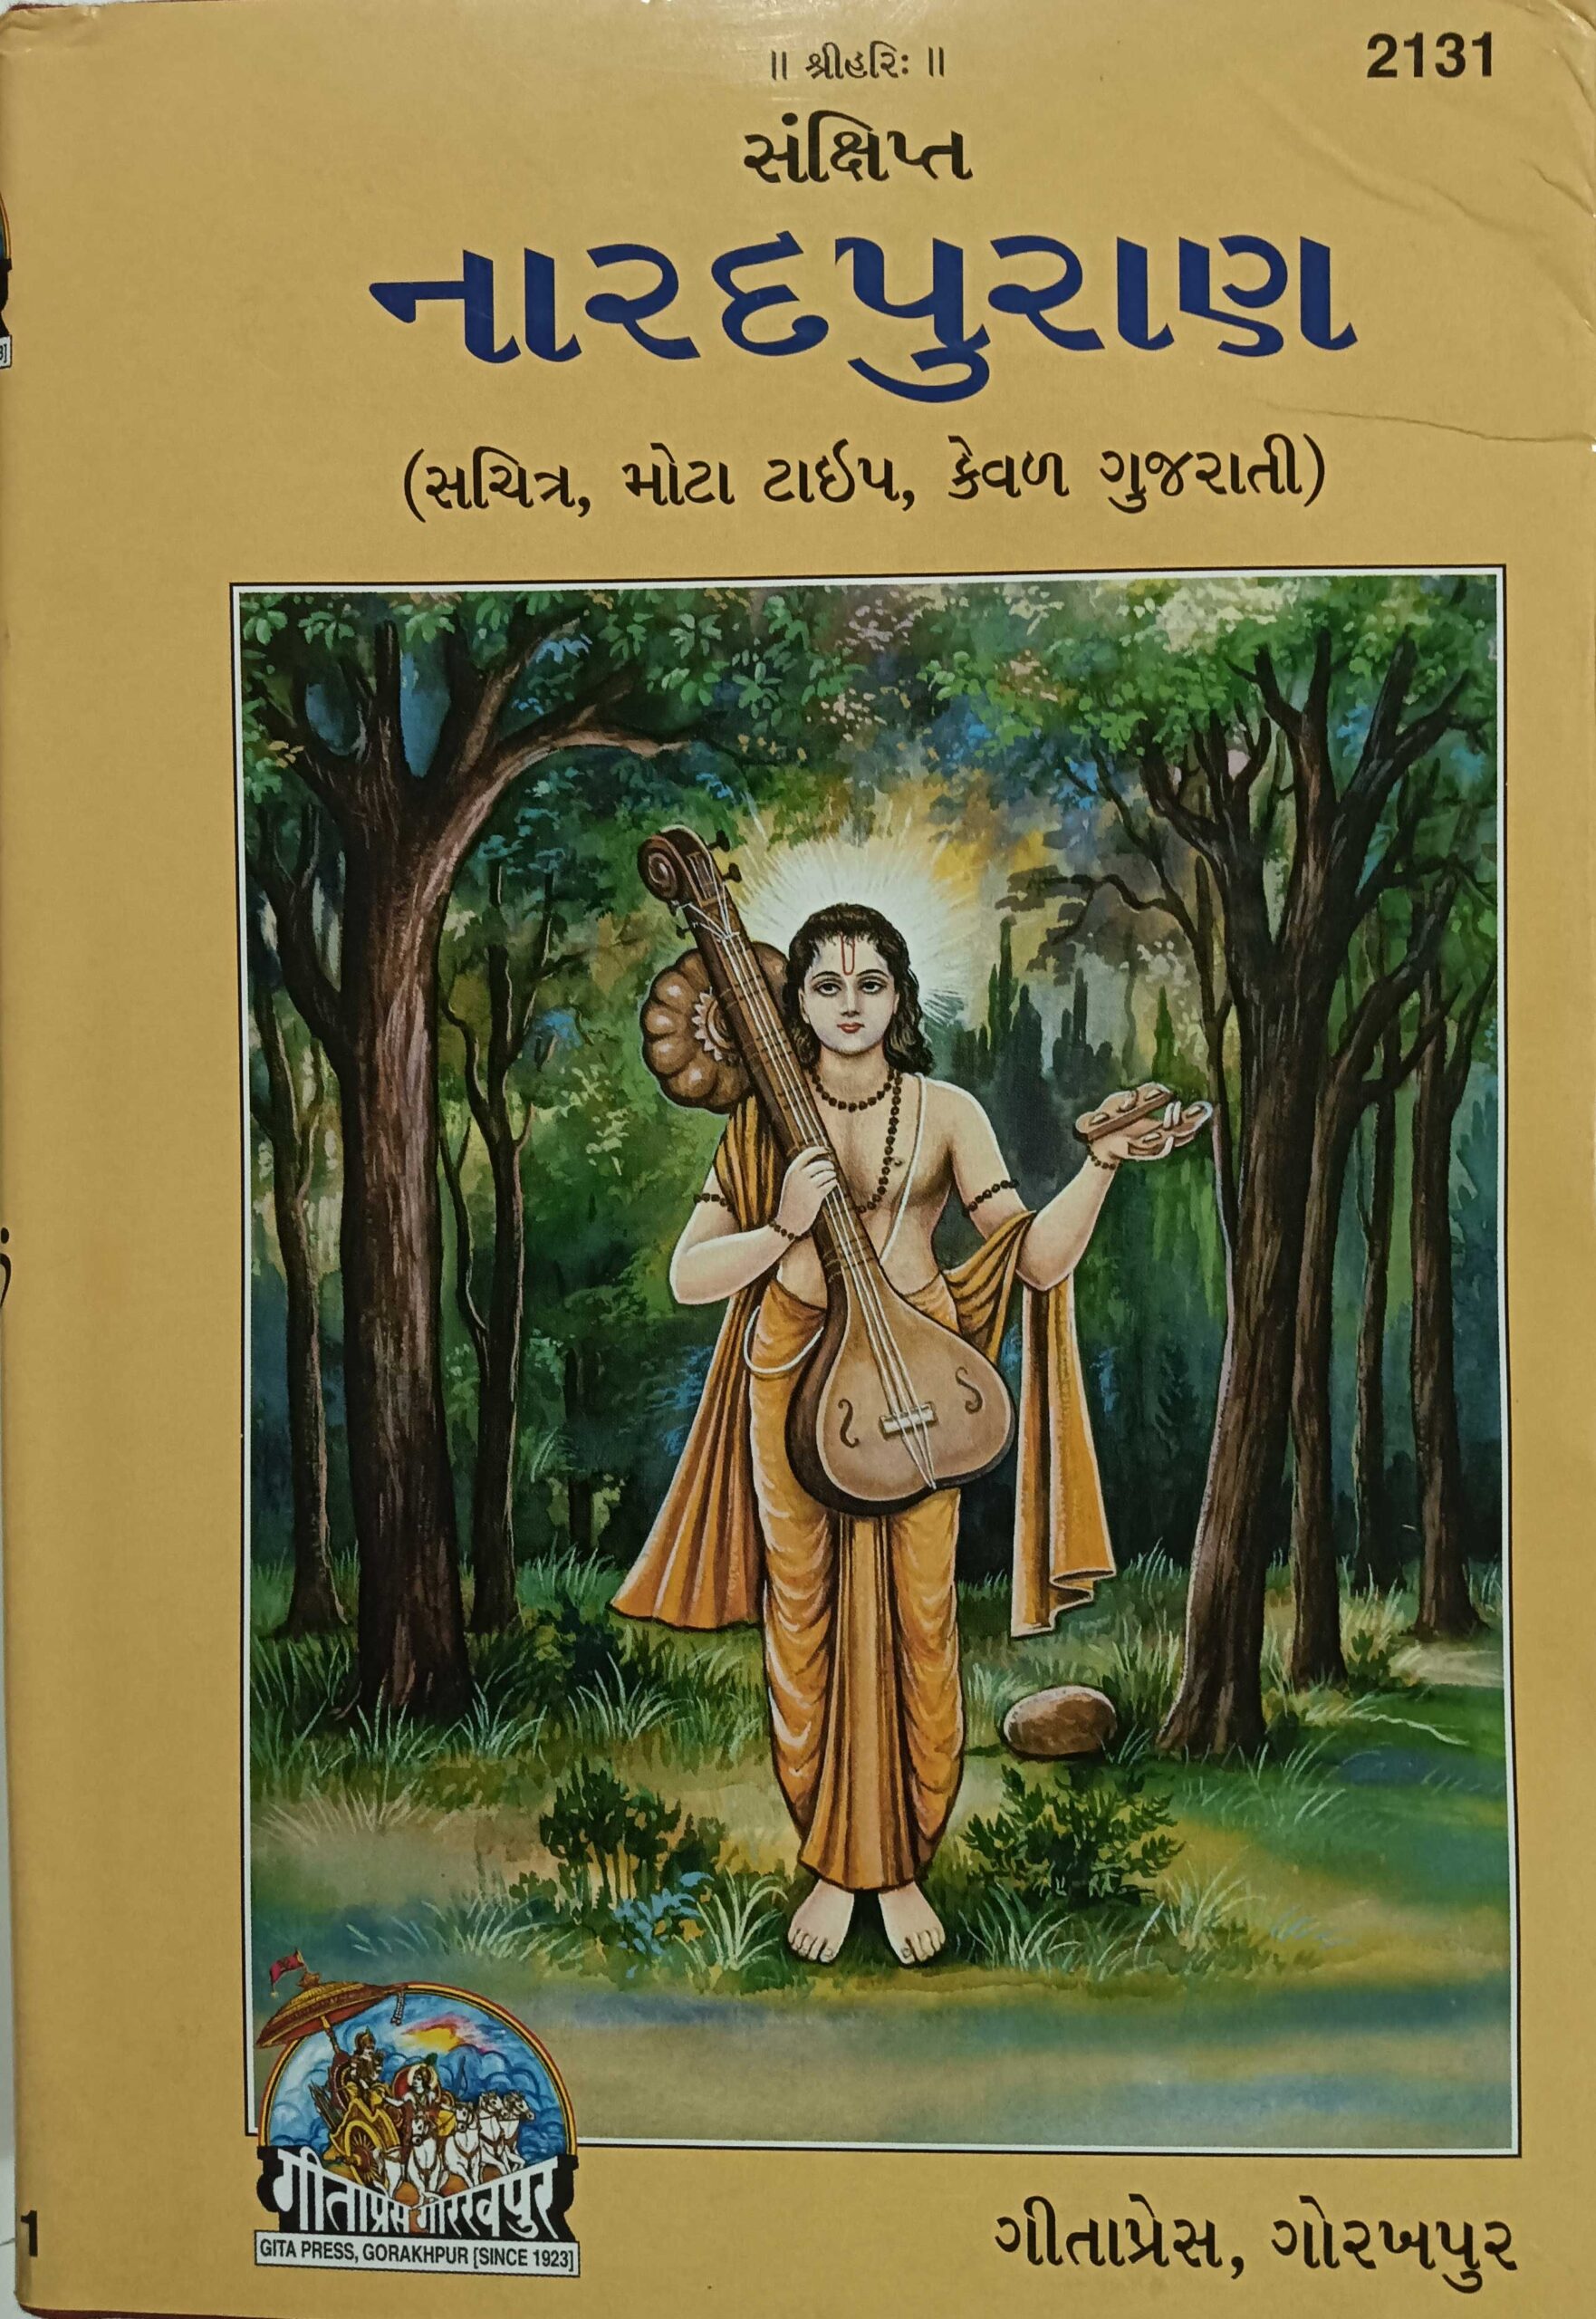 ॥ શ્રીહરિઃ ॥
2131
સંક્ષિપ્ત
નારદપુરાણ
(સચિત્ર, મોટા ટાઇપ, કેવળ ગુજરાતી)
गीताप्रेस गोरखपुर
GITA PRESS, GORAKHPUR [SINCE 1923]
ગીતાપ્રેસ, ગોરખપુર
1